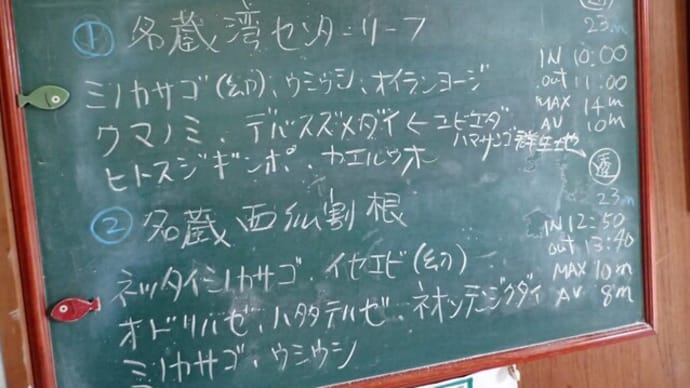 ① 名蔵湾センターリーフ
ミノカサゴ(幼)、ウミウシ、オイランヨージ
クマノミ、デバスズメダイ←エビエダ
ハマサンゴ群生地や
ヒトスジギンポ、カエルウオ
透
23m
IN 10:00
out 11:00
MAX 14m
AV 10m
② 名蔵西仏割根
ネッタイミノカサゴ、イセエビ(幼)
オドリハゼ、ハタタテハゼ、ネオンテンジクダイ
ミノカサゴ、ウミウシ
透
23m
IN 12:50
out 13:40
MAX 10m
AV 8m